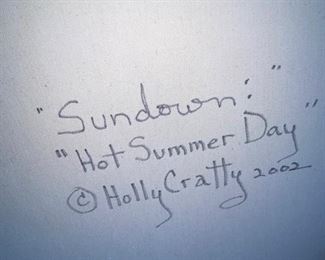 "Sundown:"
"Hot Summer Day"
© Holly Cratty 2002